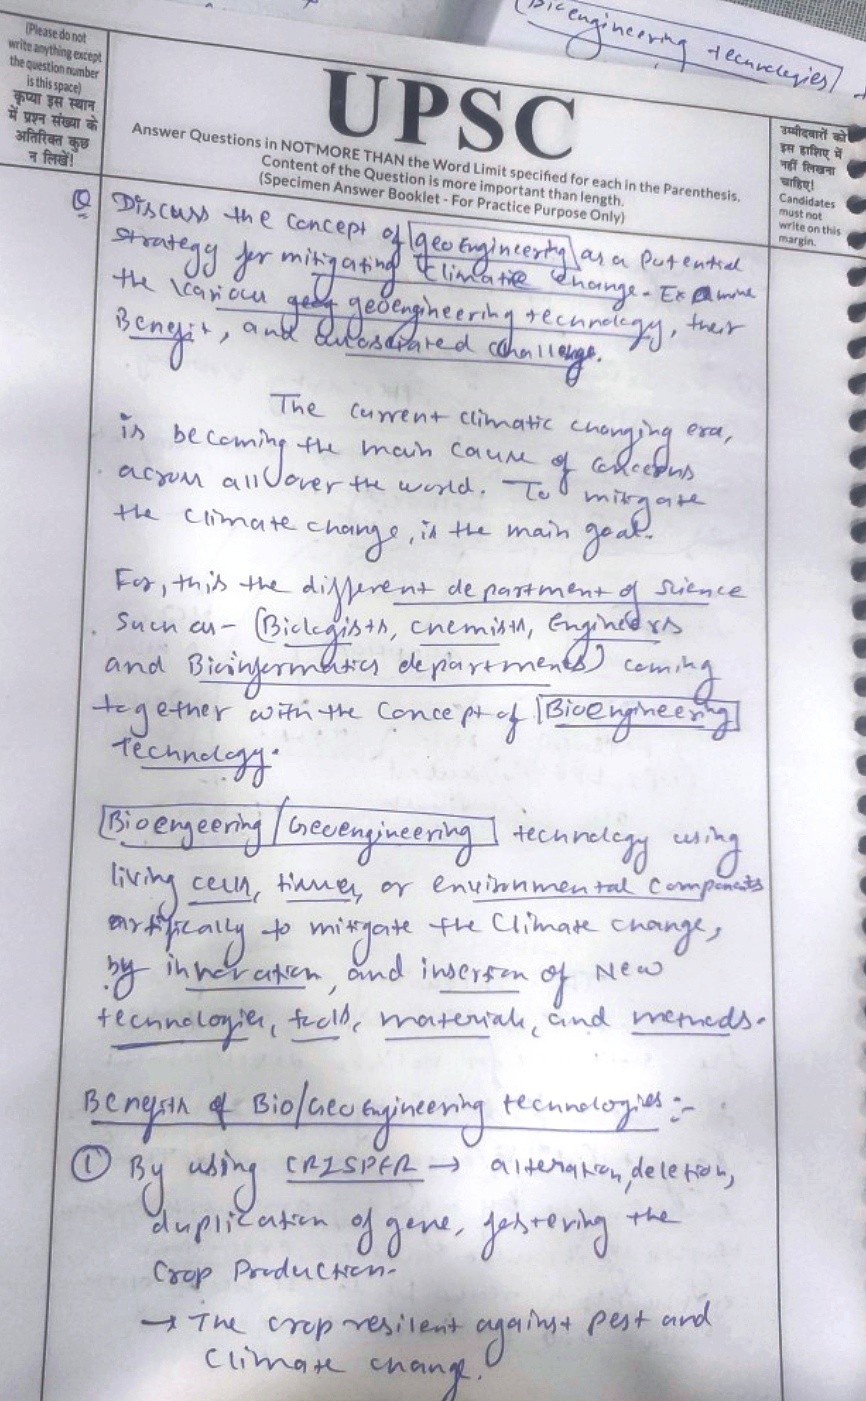 Bioengineering technologies
(Please do not
write anything except
the question number
is this space)
कृप्या इस स्थान
में प्रश्न संख्या के
अतिरिक्त कुछ
न लिखें!
UPSC
Answer Questions in NOT MORE THAN the Word Limit specified for each in the Parenthesis.
Content of the Question is more important than length.
(Specimen Answer Booklet - For Practice Purpose Only)
उम्मीदवारों को
इस हाशिए में
नहीं लिखना
चाहिए!
Candidates
must not
write on this
margin.
Q Discuss the concept of geoengineering as a potential
strategy for mitigating climatic change. Examine
the various geoengineering technology, their
Benefit, and associated challenge.
The current climatic changing era,
is becoming the main cause of concerns
across all over the world. To mitigate
the climate change, is the main goal.
For, this the different department of science
such as - (Biologists, chemists, Engineers
and Bioinformatics departments) coming
together with the concept of Bioengineering
Technology.
Bioengeering/Geoengineering technology using
living cells, tissues, or environmental components
artifically to mitigate the climate change,
by innovation, and insertion of New
technologies, tools, materials, and methods.
Benefits of Bio/Geo Engineering technologies :-
① By using CRISPER → alteration, deletion,
duplication of gene, fostering the
crop production.
→ The crop resilent against pest and
climate change.